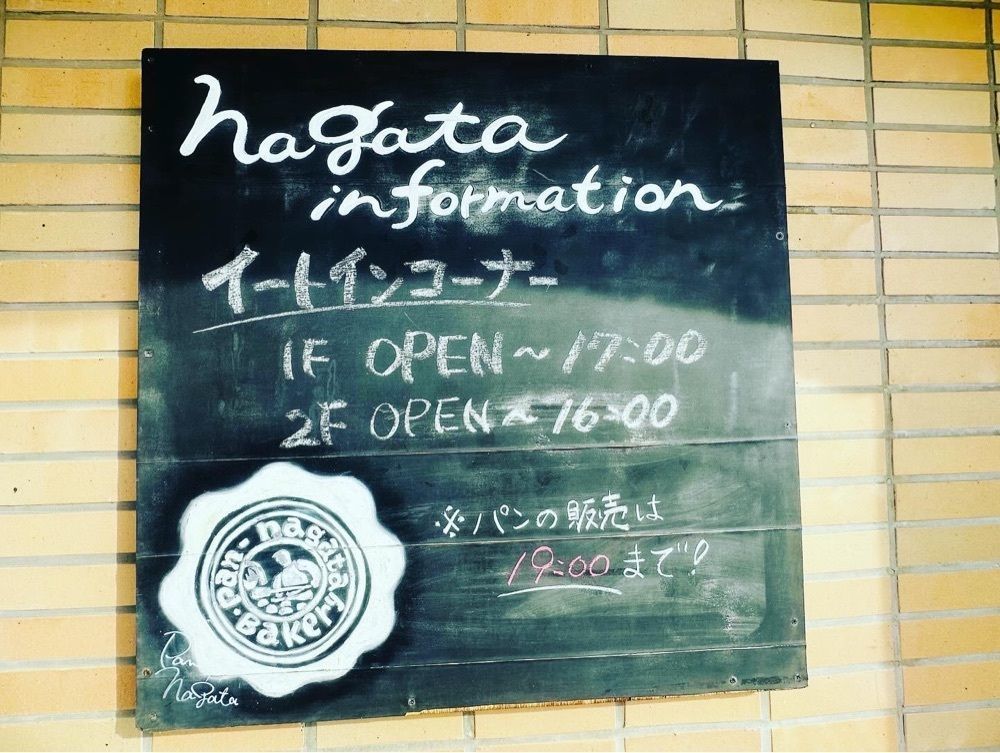 nagata
information
イートインコーナー
1F OPEN～17:00
2F OPEN～16:00
※パンの販売は
19:00まで!
Pan·nagata
BAKERY
Pan
Nagata